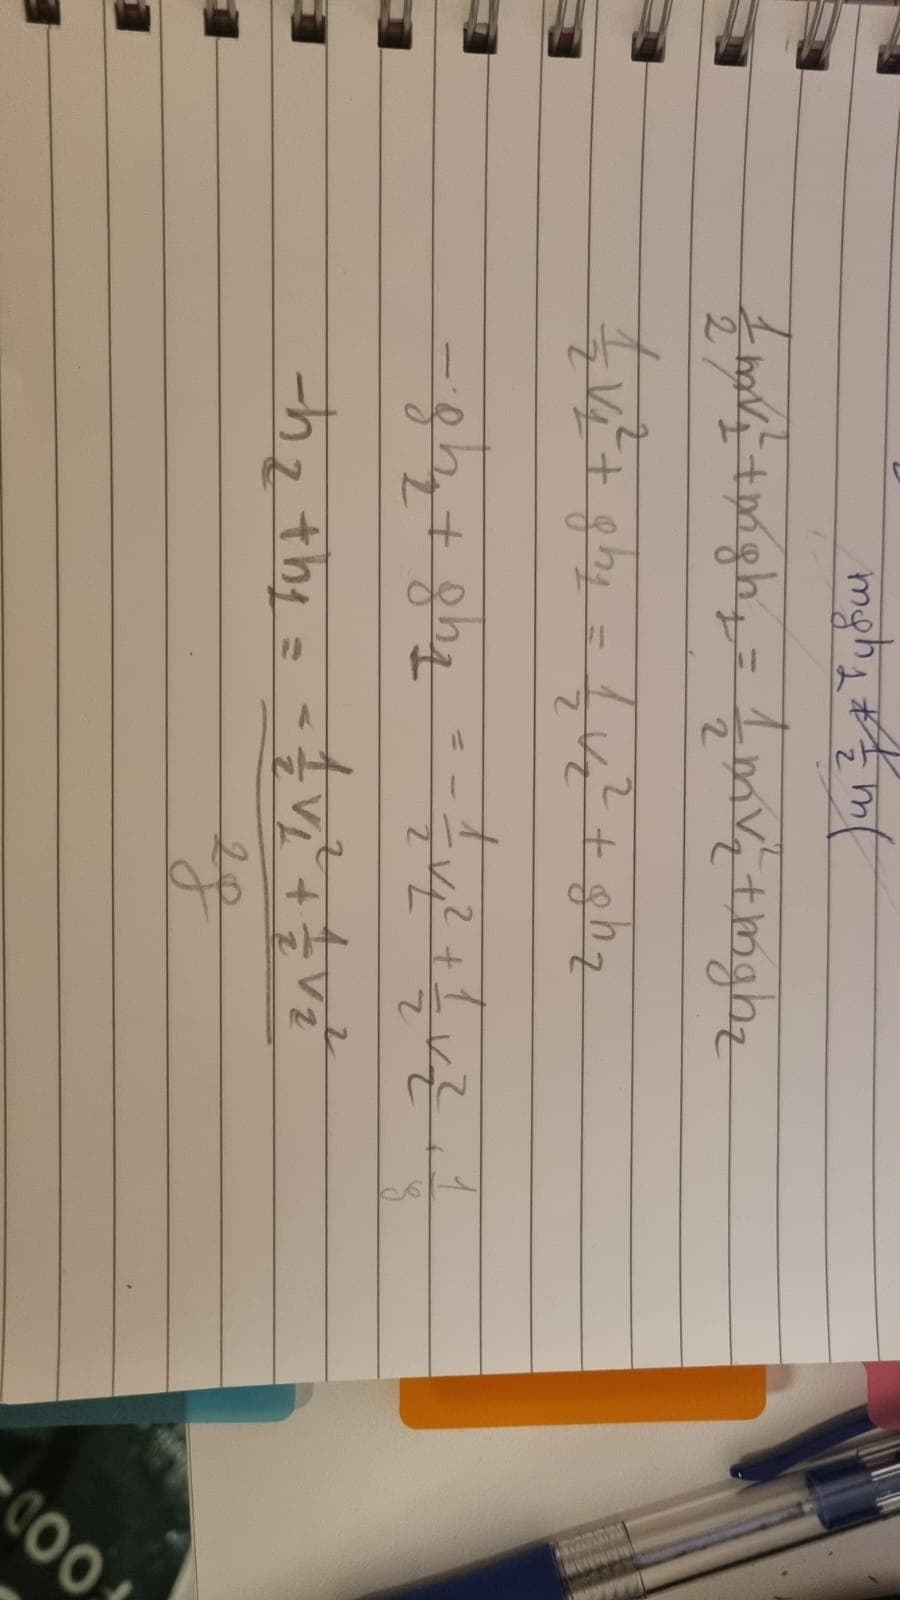 mgh₁ + ½m(
½mv₁² + mgh₁ = ½mv₂² + mgh₂
½v₁² + gh₁ = ½v₂² + gh₂
-gh₂ + gh₁ = -½v₁² + ½v₂² · 1/g
-h₂ + h₁ = -½v₁² + ½v₂²
2g
g